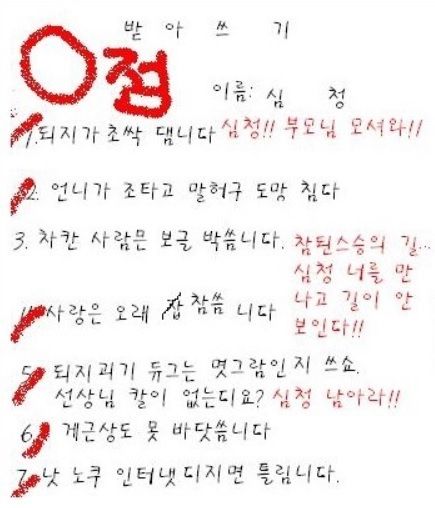 받 아 쓰 기
0점
이름: 심 청
1. 되지가 초싹 댐니다 심청!! 부모님 모셔와!!
2. 언니가 조타고 말허구 도망 침다
3. 차칸 사람믄 보글 박씀니다. 참된스승의 길...
심청 너를 만
나고 길이 안
보인다!!
4. 사랑은 오래 참씀 니다
5. 되지괴기 듀그는 몃그람인지 쓰쇼.
선상님 칼이 없는디요? 심청 남아라!!
6. 게근상도 못 바닷씀니다
7. 낫 노쿠 인터냇디지면 틀림니다.